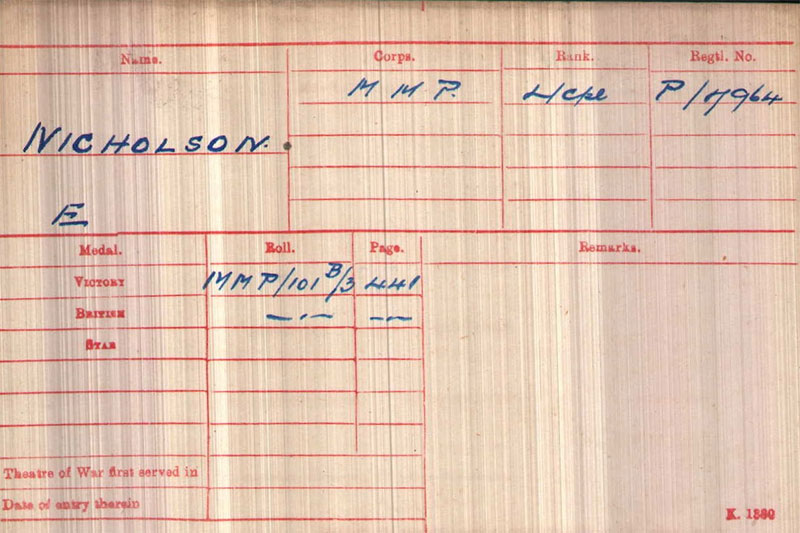 Name. Corps. Rank. Regtl. No.
NICHOLSON. M M P. L/Cpl P/7964
E
Medal. Roll. Page. Remarks.
VICTORY MMP/101 B/3 441
BRITISH —·— —·—
STAR
Theatre of War first served in
Date of entry therein
K. 1380